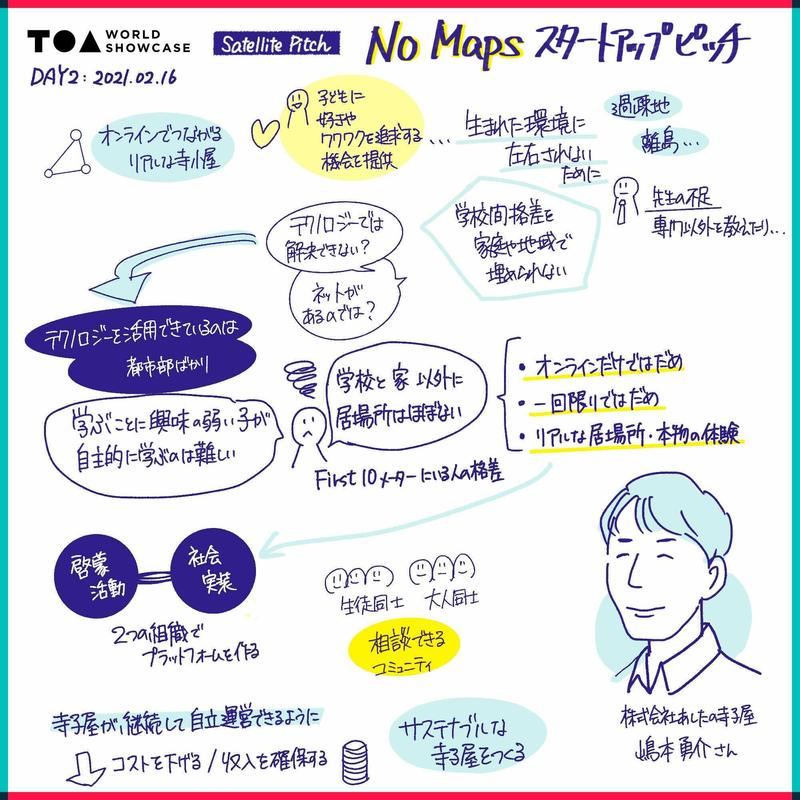 TOA WORLD
SHOWCASE
Satellite Pitch
No Maps スタートアップピッチ
DAY2: 2021.02.16
オンラインでつながる
リアルな寺小屋
子どもに
好きや
ワクワクを追求する
機会を提供
...
生まれた環境に
左右されない
ために
過疎地
離島...
先生の不足
専門以外を教えたり...
学校間格差を
家庭や地域で
埋められない
テクノロジーでは
解決できない?
ネットが
あるのでは?
テクノロジーを活用できているのは
都市部ばかり
学ぶことに興味の弱い子が
自主的に学ぶのは難しい
学校と家以外に
居場所はほぼない
First 10メーターにいる人の格差
・オンラインだけではだめ
・一回限りではだめ
・リアルな居場所・本物の体験
啓蒙
活動
社会
実装
2つの組織で
プラットフォームを作る
生徒同士 大人同士
相談できる
コミュニティ
寺子屋が継続して自立運営できるように
コストを下げる/収入を確保する
サステナブルな
寺子屋をつくる
株式会社あしたの寺子屋
嶋本勇介さん